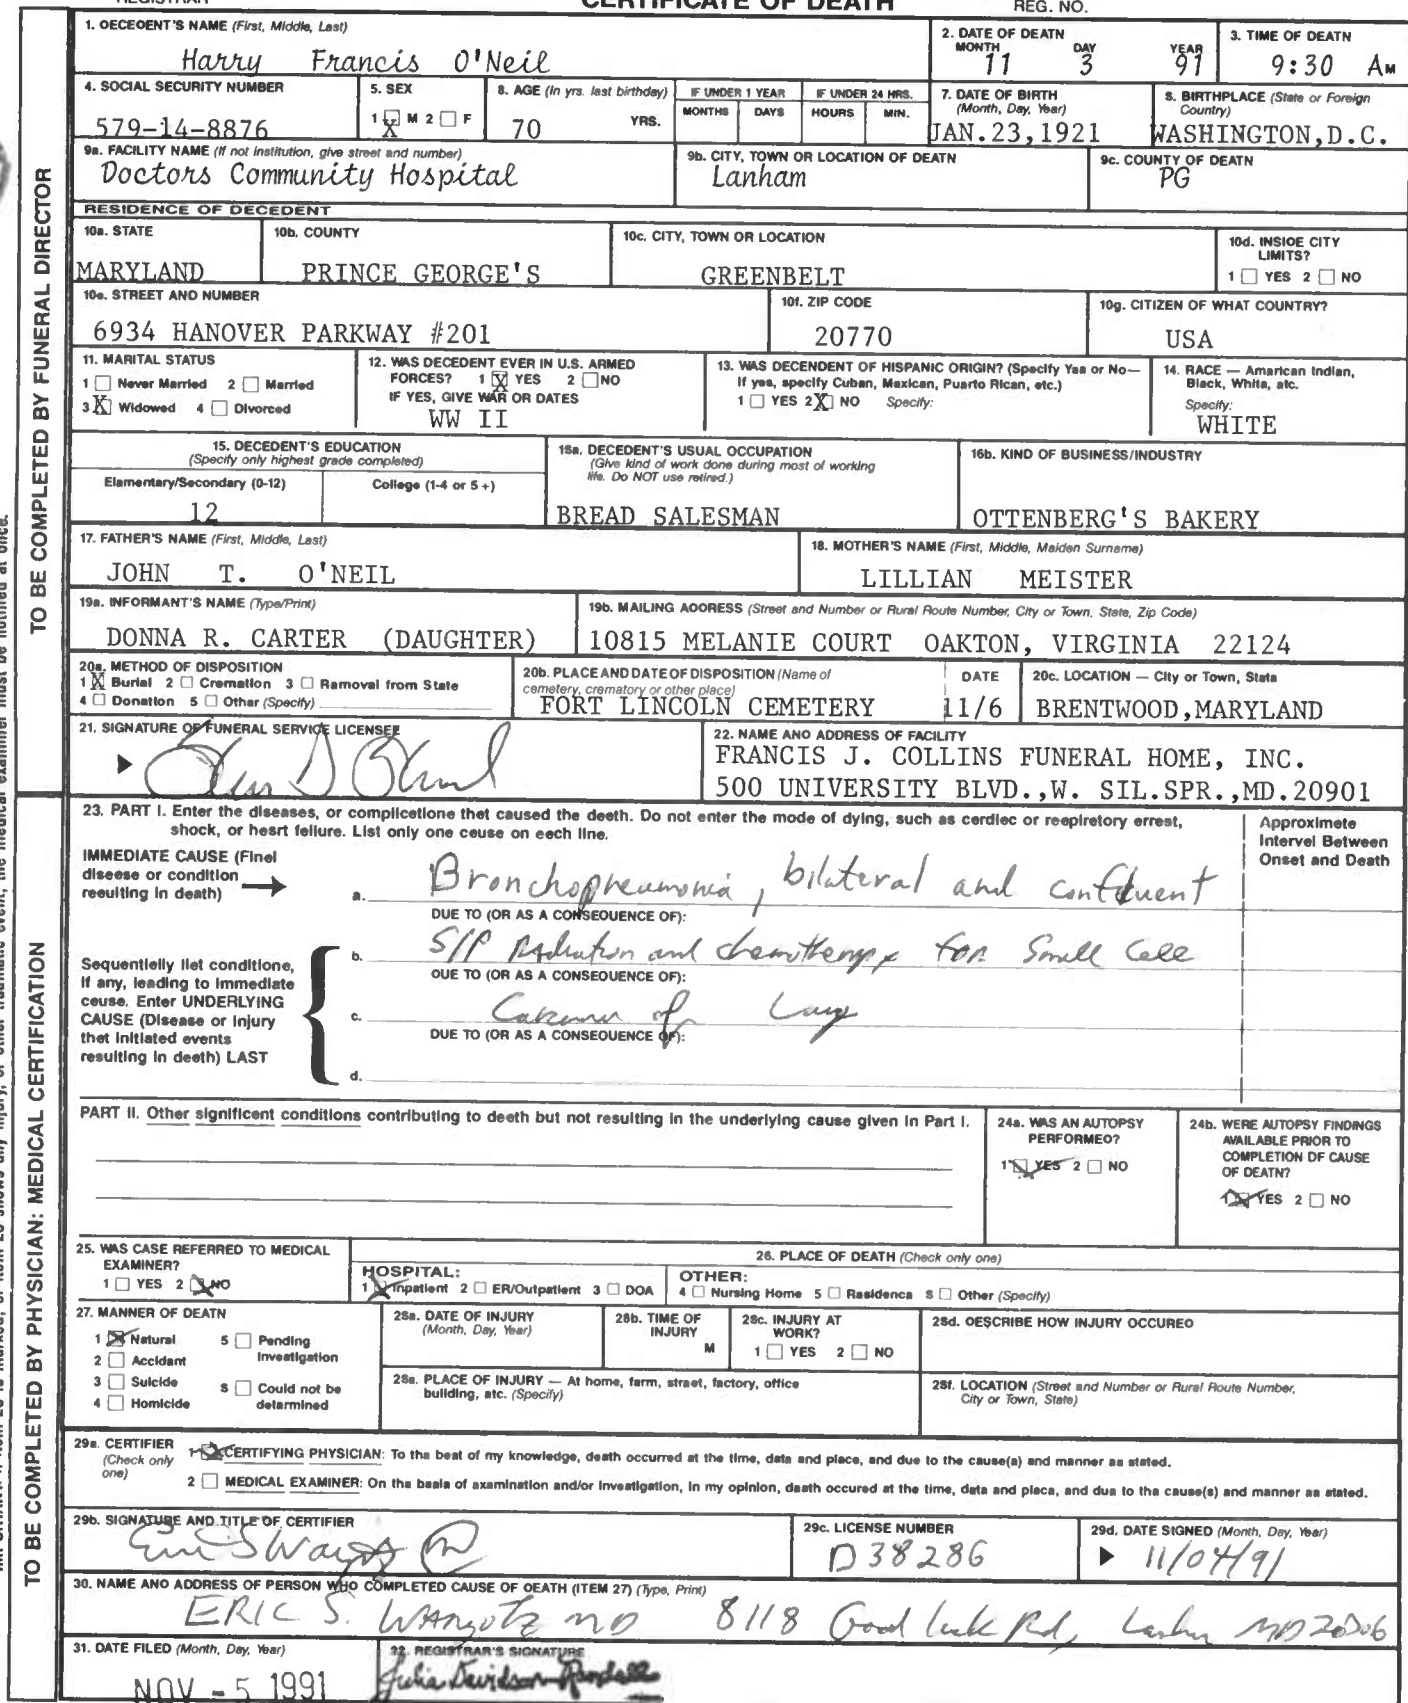 REGISTRAR CERTIFICATE OF DEATH REG. NO.
1. OECEOENT'S NAME (First, Middle, Last)
Harry Francis O'Neil
2. DATE OF DEATN
MONTH DAY YEAR
11 3 91
3. TIME OF DEATN
9:30 AM
4. SOCIAL SECURITY NUMBER
579-14-8876
5. SEX
1 X M 2 ☐ F
8. AGE (In yrs. last birthday)
70 YRS.
IF UNDER 1 YEAR
MONTHS DAYS
IF UNDER 24 HRS.
HOURS MIN.
7. DATE OF BIRTH
(Month, Day, Year)
JAN.23,1921
8. BIRTHPLACE (State or Foreign
Country)
WASHINGTON,D.C.
9a. FACILITY NAME (If not institution, give street and number)
Doctors Community Hospital
9b. CITY, TOWN OR LOCATION OF DEATH
Lanham
9c. COUNTY OF DEATH
PG
RESIDENCE OF DECEDENT
10a. STATE
MARYLAND
10b. COUNTY
PRINCE GEORGE'S
10c. CITY, TOWN OR LOCATION
GREENBELT
10d. INSIOE CITY
LIMITS?
1 ☐ YES 2 ☐ NO
10e. STREET AND NUMBER
6934 HANOVER PARKWAY #201
10f. ZIP CODE
20770
10g. CITIZEN OF WHAT COUNTRY?
USA
11. MARITAL STATUS
1 ☐ Never Married 2 ☐ Married
3 X Widowed 4 ☐ Divorced
12. WAS DECEDENT EVER IN U.S. ARMED
FORCES? 1 X YES 2 ☐ NO
IF YES, GIVE WAR OR DATES
WW II
13. WAS DECENDENT OF HISPANIC ORIGIN? (Specify Yes or No—
If yes, specify Cuban, Mexican, Puerto Rican, etc.)
1 ☐ YES 2 X NO Specify:
14. RACE — American Indian,
Black, White, atc.
Specify:
WHITE
15. DECEDENT'S EDUCATION
(Specify only highest grade completed)
Elamentary/Secondary (0-12) College (1-4 or 5 +)
12
16a. DECEDENT'S USUAL OCCUPATION
(Give kind of work done during most of working
life. Do NOT use retired.)
BREAD SALESMAN
16b. KIND OF BUSINESS/INDUSTRY
OTTENBERG'S BAKERY
17. FATHER'S NAME (First, Middle, Last)
JOHN T. O'NEIL
18. MOTHER'S NAME (First, Middle, Maiden Surname)
LILLIAN MEISTER
19a. INFORMANT'S NAME (Type/Print)
DONNA R. CARTER (DAUGHTER)
19b. MAILING AOORESS (Street and Number or Rural Route Number, City or Town, State, Zip Code)
10815 MELANIE COURT OAKTON, VIRGINIA 22124
20a. METHOD OF DISPOSITION
1 X Burial 2 ☐ Cremation 3 ☐ Ramoval from State
4 ☐ Donation 5 ☐ Other (Specify)
20b. PLACE AND DATE OF DISPOSITION (Name of
cemetery, crematory or other place)
FORT LINCOLN CEMETERY
DATE
11/6
20c. LOCATION — City or Town, Stata
BRENTWOOD,MARYLAND
21. SIGNATURE OF FUNERAL SERVICE LICENSEE
22. NAME ANO ADDRESS OF FACILITY
FRANCIS J. COLLINS FUNERAL HOME, INC.
500 UNIVERSITY BLVD.,W. SIL.SPR.,MD.20901
TO BE COMPLETED BY FUNERAL DIRECTOR
23. PART I. Enter the diseases, or complicetione thet caused the deeth. Do not enter the mode of dying, such as cerdiec or reepiretory errest,
shock, or heart feilure. List only one ceuse on eech line.
Approximete
Intervel Between
Onset and Death
IMMEDIATE CAUSE (Finel
diseese or condition
reeulting in death)
a. Bronchopneumonia, bilateral and confluent
DUE TO (OR AS A CONSEQUENCE OF):
Sequentielly liet conditione,
if any, leading to immediate
ceuse. Enter UNDERLYING
CAUSE (Disease or Injury
thet initiated events
resulting in deeth) LAST
b. S/P Radiation and chemotherapy for Small Cell
OUE TO (OR AS A CONSEQUENCE OF):
c. Carcinoma of Lung
DUE TO (OR AS A CONSEQUENCE OF):
d.
PART II. Other significent conditions contributing to deeth but not resulting in the underlying cause given in Part I.
24a. WAS AN AUTOPSY
PERFORMEO?
1 X YES 2 ☐ NO
24b. WERE AUTOPSY FINDINGS
AVAILABLE PRIOR TO
COMPLETION DF CAUSE
OF DEATN?
1 X YES 2 ☐ NO
25. WAS CASE REFERRED TO MEDICAL
EXAMINER?
1 ☐ YES 2 X NO
26. PLACE OF DEATH (Check only one)
HOSPITAL:
1 X Inpatient 2 ☐ ER/Outpatlent 3 ☐ DOA
OTHER:
4 ☐ Nursing Home 5 ☐ Rasidenca 8 ☐ Other (Specify)
27. MANNER OF DEATN
1 X Natural 5 ☐ Pending
Investigation
2 ☐ Accidant
3 ☐ Sulcide 8 ☐ Could not be
determined
4 ☐ Homicide
28a. DATE OF INJURY
(Month, Day, Year)
28b. TIME OF
INJURY
M
28c. INJURY AT
WORK?
1 ☐ YES 2 ☐ NO
28d. OESCRIBE HOW INJURY OCCUREO
28e. PLACE OF INJURY — At home, farm, straet, factory, office
building, atc. (Specify)
28f. LOCATION (Street and Number or Rural Route Number,
City or Town, State)
29a. CERTIFIER
(Check only
one)
1 X CERTIFYING PHYSICIAN: To tha beat of my knowledge, death occurred at the time, data and place, and due to the cause(a) and manner aa stated.
2 ☐ MEDICAL EXAMINER: On tha basla of axamination and/or Investigation, in my opinion, daath occured at the time, data and placa, and dua to tha cause(s) and manner aa atated.
29b. SIGNATURE AND TITLE OF CERTIFIER
29c. LICENSE NUMBER
D38286
29d. DATE SIGNED (Month, Day, Year)
11/04/91
30. NAME ANO ADDRESS OF PERSON WHO COMPLETED CAUSE OF OEATH (ITEM 27) (Type, Print)
ERIC S. WARGOTZ MD 8118 Good Luck Rd, Lanham MD 20706
31. DATE FILED (Month, Day, Year)
NOV - 5 1991
32. REGISTRAR'S SIGNATURE
Julia Davidson-Randall
TO BE COMPLETED BY PHYSICIAN: MEDICAL CERTIFICATION